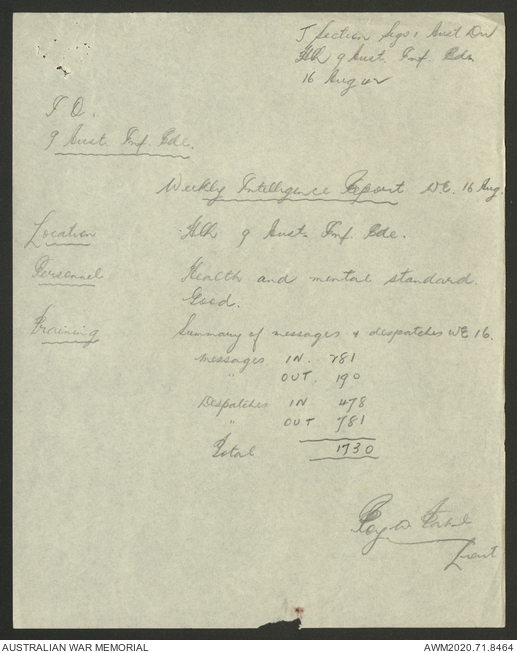 J Section Sigs 1 Aust Div
HQ 9 Aust. Inf. Bde.
16 Aug 42
I O.
9 Aust. Inf. Bde.
Weekly Intelligence Report WE. 16 Aug.
Location HQ 9 Aust. Inf. Bde.
Personnel Health and mental standard
Good.
Training Summary of messages & despatches WE 16.
Messages IN. 281
" OUT. 190
Despatches IN 478
" OUT 781
Total 1730
Roy W
Lieut
AUSTRALIAN WAR MEMORIAL AWM2020.71.8464